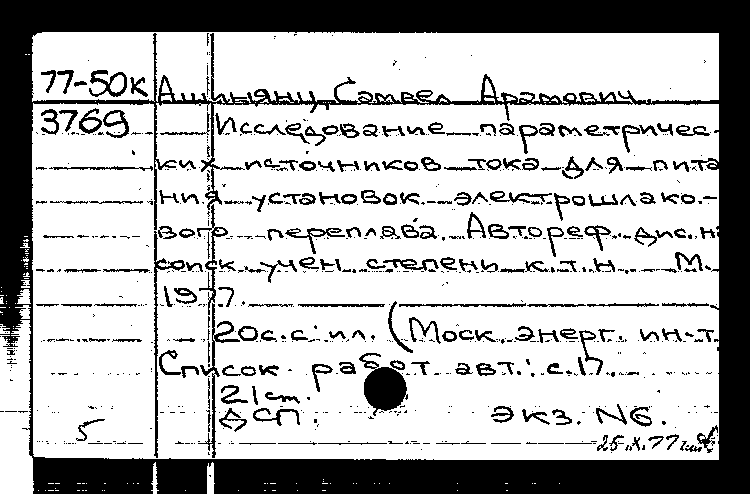 77-50к Ашинянц, Самвел Арамович
3769 Исследование параметричес-
ких источников тока для пита
ния установок электрошлако-
вого переплава. Автореф. дис. н
соиск. учен. степени к.т.н М.
1977.
20с. с ил. (Моск. энерг. ин-т.
Список работ авт.: с. 17.
21cm.
ДСП. Экз. N6.
5
25.X.77